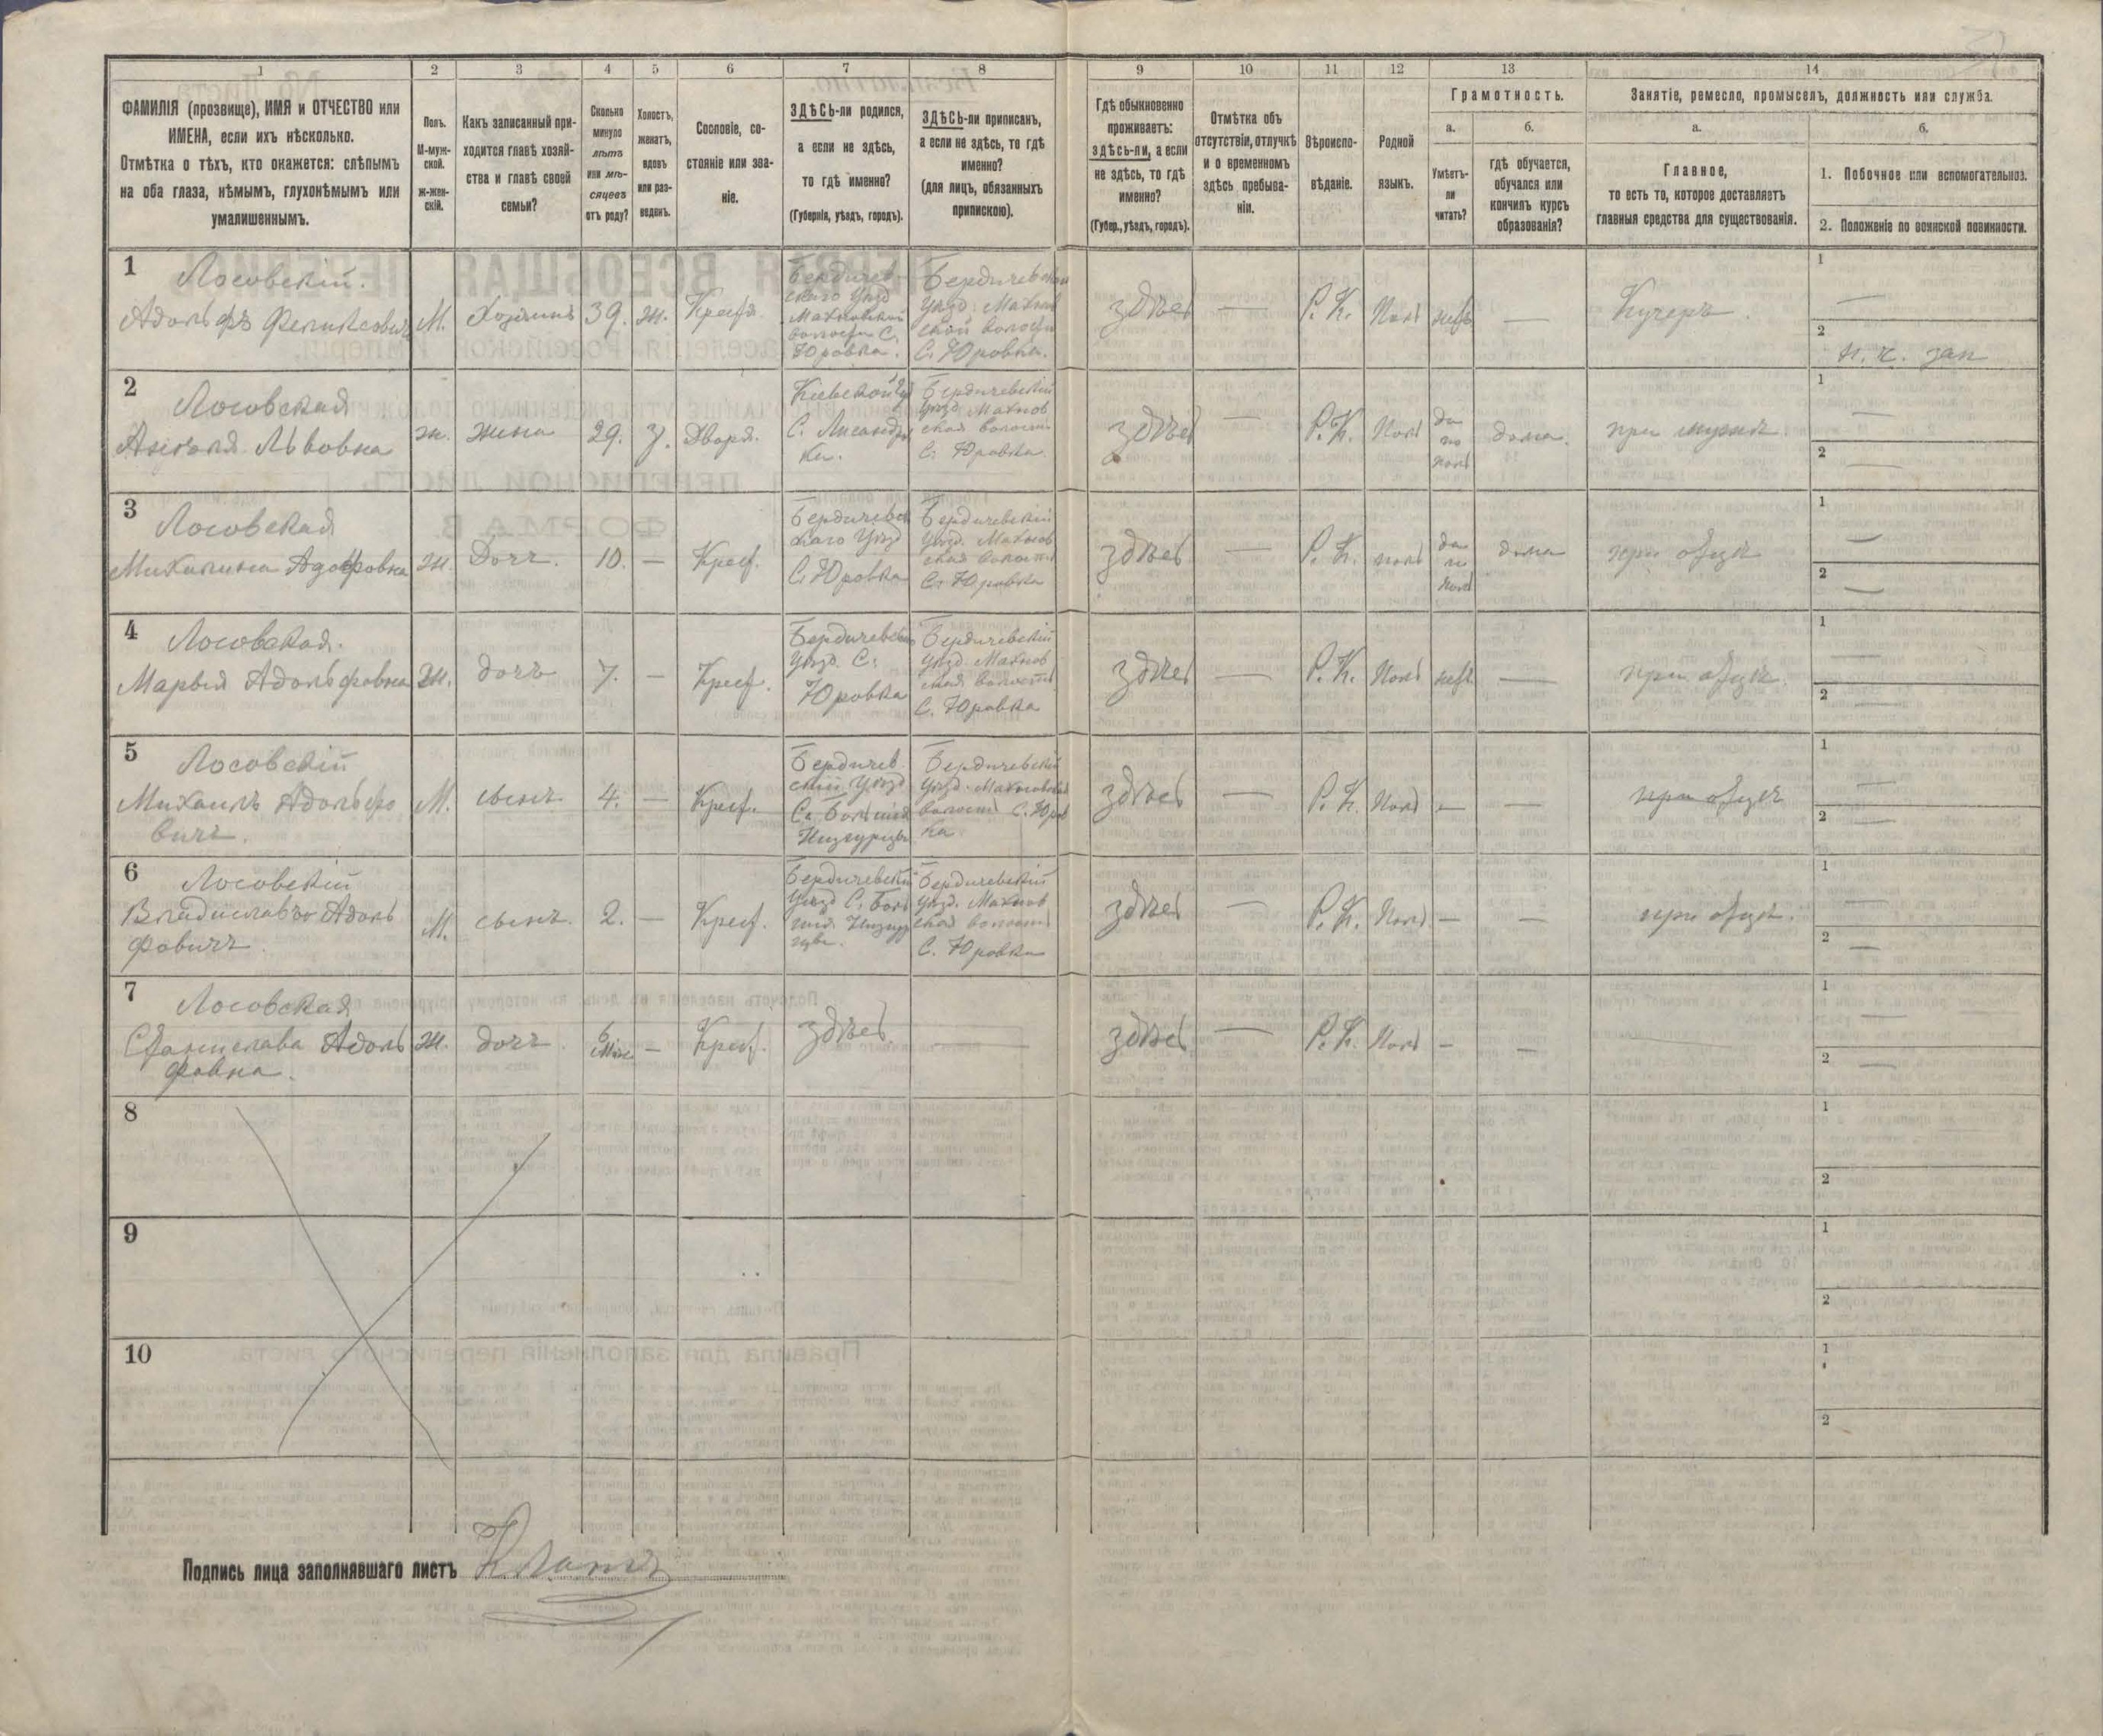 1 2 3 4 5 6 7 8 9 10 11 12 13 14
ФАМИЛІЯ (прозвище), ИМЯ и ОТЧЕСТВО или
ИМЕНА, если ихъ нѣсколько.
Отмѣтка о тѣхъ, кто окажется: слѣпымъ
на оба глаза, нѣмымъ, глухонѣмымъ или
умалишеннымъ.
Полъ.
М-муж-
ской.
ж-жен-
скій.
Какъ записанный при-
ходится главѣ хозяй-
ства и главѣ своей
семьи?
Сколько
минуло
лѣтъ
или мѣ-
сяцевъ
отъ роду?
Холостъ,
женатъ,
вдовъ
или раз-
веденъ.
Сословіе, со-
стояніе или зва-
ніе.
ЗДѢСЬ-ли родился,
а если не здѣсь,
то гдѣ именно?
(Губернія, уѣздъ, городъ).
ЗДѢСЬ-ли приписанъ,
а если не здѣсь, то гдѣ
именно?
(для лицъ, обязанныхъ
припискою).
Гдѣ обыкновенно
проживаетъ:
здѣсь-ли, а если
не здѣсь, то гдѣ
именно?
(Губер., уѣздъ, городъ).
Отмѣтка объ
отсутствіи, отлучкѣ
и о временномъ
здѣсь пребыва-
ніи.
Вѣроиспо-
вѣданіе.
Родной
языкъ.
Грамотность.
а.
Умѣетъ-
ли
читать?
б.
гдѣ обучается,
обучался или
кончилъ курсъ
образованія?
Занятіе, ремесло, промыселъ, должность или служба.
а.
Главное,
то есть то, которое доставляетъ
главныя средства для существованія.
б.
1. Побочное или вспомогательное.
2. Положеніе по воинской повинности.
1
Лосовскій.
Адольфъ Феликсовичъ
М.
Хозяинъ
39.
ж.
Крест.
Бердичев-
скаго Уѣзд
Махновской
волости С.
Юровка.
Бердичевскій
Уѣзд. Махнов
ской волости
С. Юровка.
здѣсь
—
Р. К.
Пол
нѣт
—
Кучеръ.
1
—
2
2
Лосовская
Львовна
ж.
жена
29.
з.
Дворя.
Кіевской
С.
Бердичевскій
Уѣзд. Махнов
ская волость
С. Юровка.
здѣсь
—
Р. К.
Пол
да
по
пол
дома.
при мужѣ
1
—
2
—
3
Лосовская
Михалина Адольфовна
ж.
Доч.
10.
—
Крест.
Бердичев
скаго Уѣзд
С. Юровка
Бердичевскій
Уѣзд. Махнов
ская волость
С. Юровка
здѣсь
—
Р. К.
пол
да
по
пол
дома
при отцѣ
1
—
2
—
4
Лосовская.
Марья Адольфовна
ж.
дочь
7.
—
Крест.
Бердичевскій
Уѣзд. С.
Юровка
Бердичевскій
Уѣзд. Махнов
ская волость
С. Юровка
здѣсь
—
Р. К.
Пол
нѣт
—
при отцѣ.
1
—
2
—
5
Лосовскій
Михаилъ Адольфо
вичъ.
М.
сынъ
4.
—
Крест.
Бердичев
скій Уѣзд
С. Большія
Низгурцы
Бердичевскій
Уѣзд. Махновская
волость С. Юров
ка
здѣсь
—
Р. К.
Пол
—
—
при отцѣ
1
—
2
—
6
Лосовскій
Владиславъ Адоль
фовичъ.
М.
сынъ.
2.
—
Крест.
Бердичевскій
Уѣзд С. Боль
шія Низгур
цы.
Бердичевскій
Уѣзд. Махнов
ская волость
С. Юровка
здѣсь
—
Р. К.
Пол
—
—
при отцѣ.
1
—
2
—
7
Лосовская
Станислава Адоль
фовна.
ж.
дочь
6
—
Крест.
здѣсь
—
здѣсь
—
Р. К.
Пол
—
—
1
—
2
—
8
1
2
9
1
2
10
1
2
Подпись лица заполнявшаго листъ